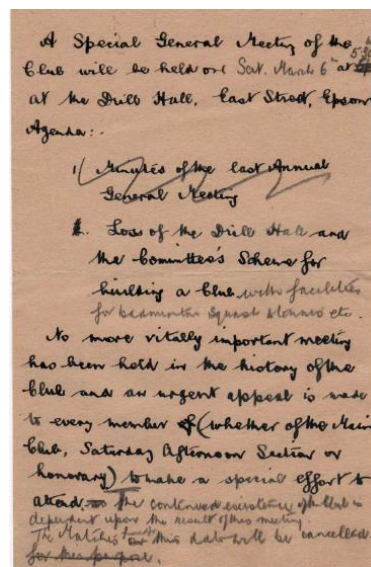 A Special General Meeting of the
Club will be held on Sat. March 6th at 5.30
at the Drill Hall, East Street, Epsom
Agenda:-
1) Minutes of the last Annual
General Meeting
Loss of the Drill Hall and
the Committee's Scheme for
building a Club with facilities
for badminton squash & tennis etc.
No more vitally important meeting
has been held in the history of the
Club and an urgent appeal is made
to every member of (whether of the Main
Club, Saturday Afternoon Section or
honorary) to make a special effort to
attend. The continued existence of the Club is
dependent upon the result of this meeting.
The Matches this date will be cancelled
for this purpose.